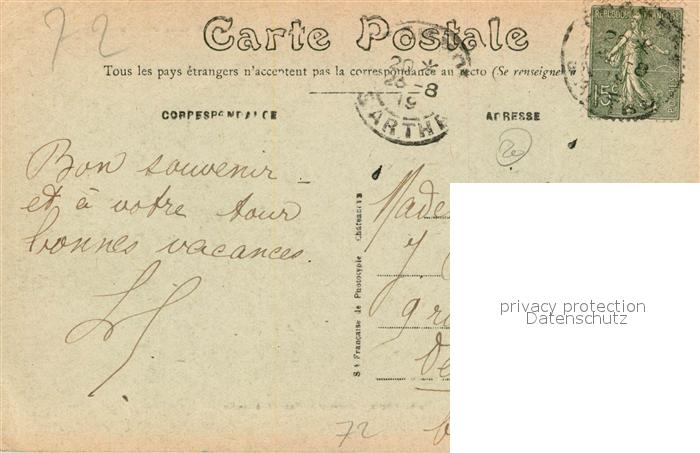 72
Carte Postale
Tous les pays étrangers n'acceptent pas la correspondance au recto (Se renseigner à
CORRESPONDANCE
ADRESSE
20 *
26 -8
19
SARTHE
15c
20
Bon souvenir
et à votre tour
bonnes vacances.
Made
J.
De
72
Sté Française de Phototypie Châteauroux
privacy protection
Datenschutz